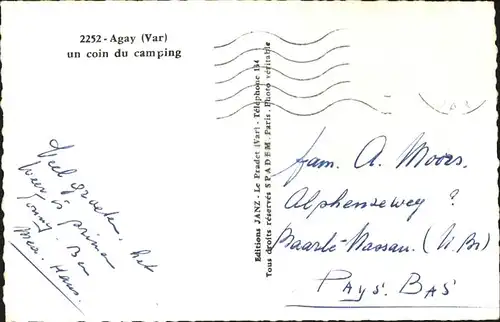 2252 - Agay (Var)
un coin du camping
Veel groeten, het
weer is prima
Tonny. Ben
Mea. Hans.
Editions JANZ - Le Pradet (Var) - Téléphone 134
Tous droits réservés SPADEM. Paris. Photo véritable
fam. A. Moors.
Alphenseweg ?
Baarle-Nassau. (N.Br)
PAYS. BAS